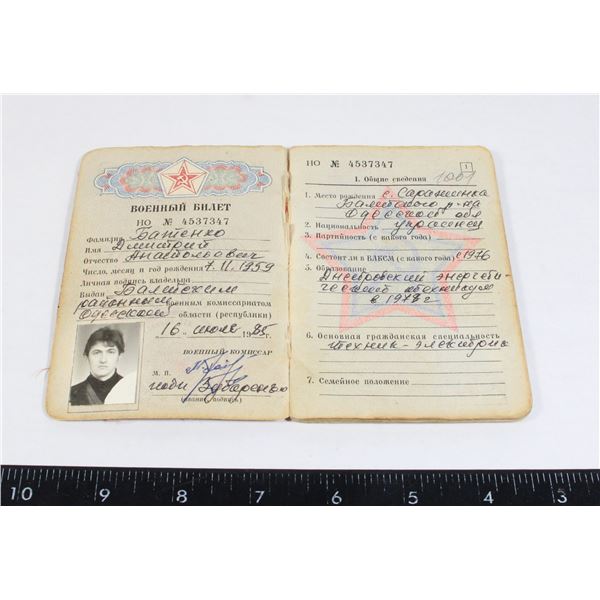 ВОЕННЫЙ БИЛЕТ
НО № 4537347
Фамилия Батенко
Имя Дмитрий
Отчество Анатольевич
Число, месяц и год рождения 7.11.1959
Личная подпись владельца
Выдан Балтским
районным военным комиссариатом
Одесской области (республики)
16 июля 1985 г.
ВОЕННЫЙ КОМИССАР
М. П.
(звание, подпись)
НО № 4537347
1
1. Общие сведения
1. Место рождения с.
Балтского р-на
Одесской обл
2. Национальность украинец
3. Партийность (с какого года)
4. Состоит ли в ВЛКСМ (с какого года) с 1976
5. Образование
Днепровский энергети-
ческий техникум
в 1978 г
6. Основная гражданская специальность
техник-электрик
7. Семейное положение
10 9 8 7 6 5 4 3